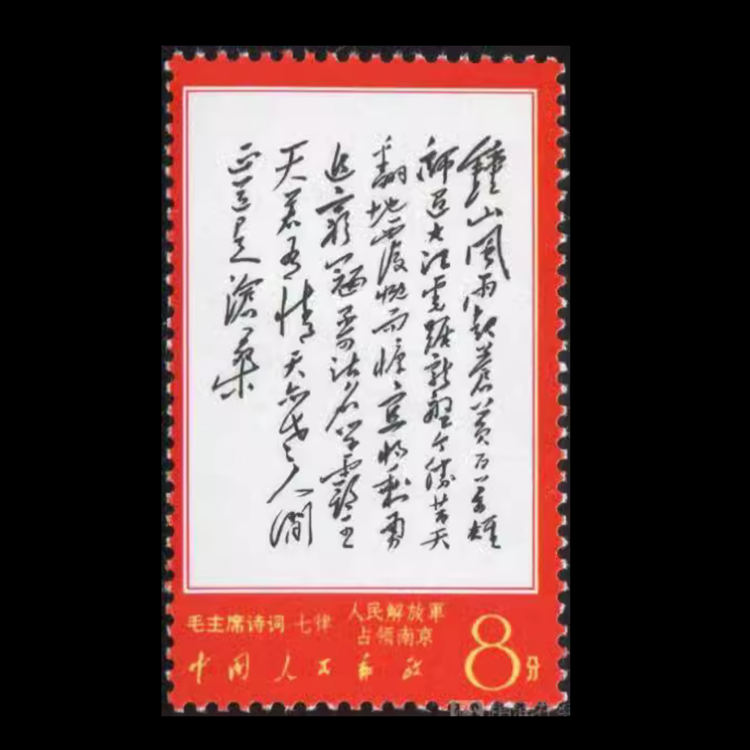 鐘山風雨起蒼黃百万雄
師過大江虎踞龍盤今勝昔天
翻地覆慨而慷宜將剩勇
追窮寇不可沽名學霸王
天若有情天亦老人間
正道是滄桑
毛主席诗词 七律 人民解放軍
占领南京
中国人民邮政
8分